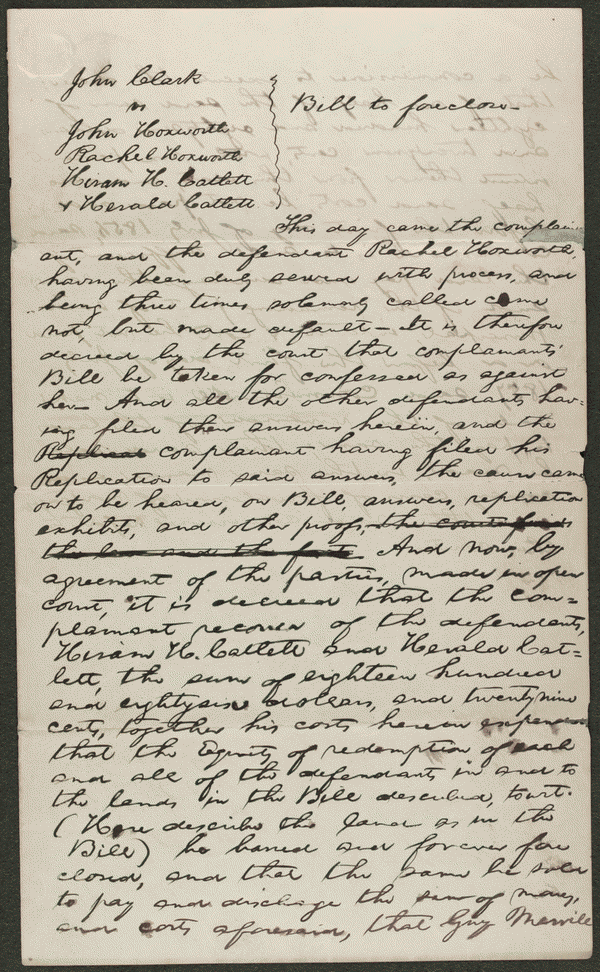 John Clark
vs
Bill to foreclose
John Hoxworth
Rachel Hoxworth
Hiram H. Catlett
& Herald Catlett
This day came the complain
ant, and the defendant Rachel Hoxworth,
having been duly served with process, and
being three times solemnly called came
not, but made default - It is therefore
decreed by the court that complainants
Bill be taken for confessed as against
her - And all the other defendants hav=
ing filed their answers herein, and the
Replicat complainant having filed his
Replication to said answers, the cause came
on to be heared, on Bill, answers, replication
exhibits, and other proofs, the court finds
the law and the facts And now, by
agreement of the parties, made in open
court, it is decreed that the com=
plainant recover of the defendants,
Hiram H. Catlett and Herald Cat=
lett, the sum of eighteen hundred
and eightysix dollars, and twentynine
cents, together his costs herein expended
that the Equity of redemption of each
and all of the defendants in and to
the lands in the Bill described, towit.
(Here describe the land as in the
Bill) be bared and forever fore
closed, and that the same be sold
to pay and discharge the sum of money,
and costs aforesaid, that Guy Merrill